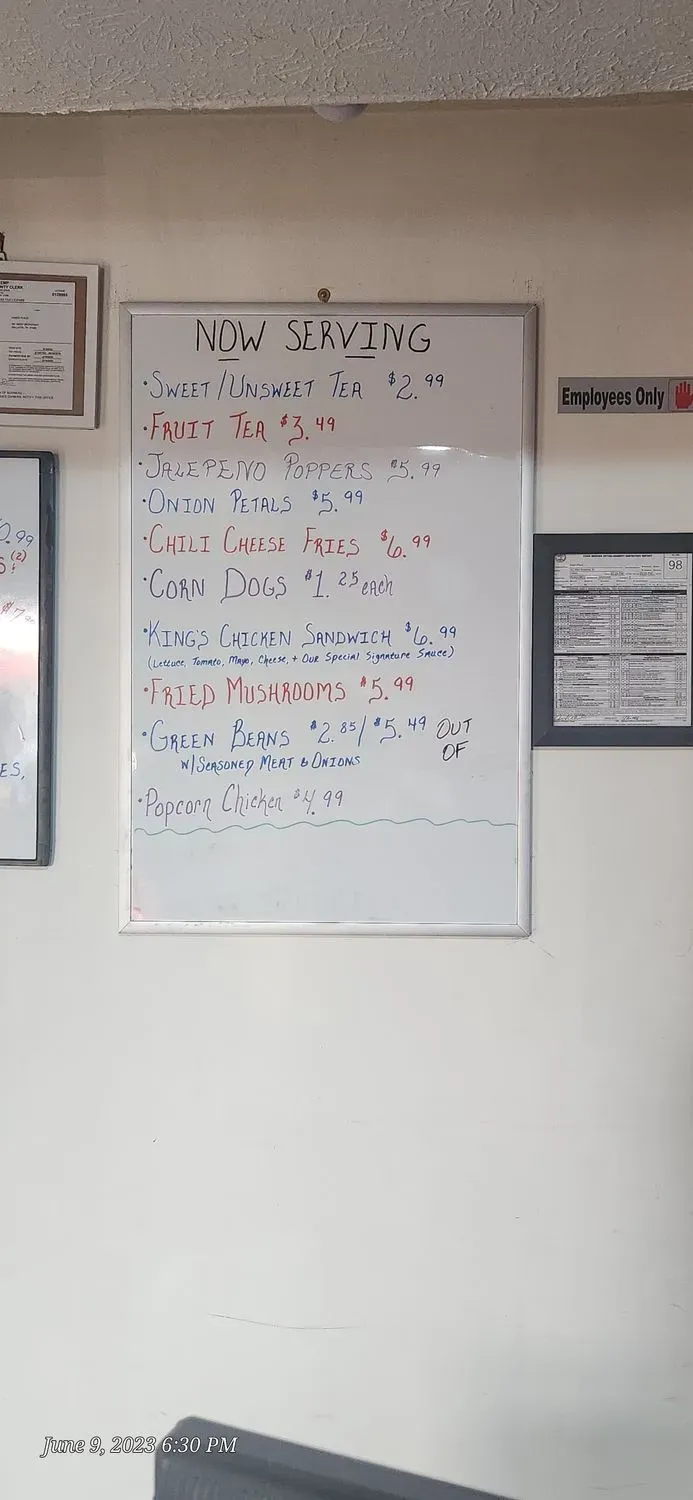 NOW SERVING
·SWEET/UNSWEET TEA $2.99
·FRUIT TEA $3.49
·JALEPENO POPPERS $5.99
·ONION PETALS $5.99
·CHILI CHEESE FRIES $6.99
·CORN DOGS $1.25 each
·KING'S CHICKEN SANDWICH $6.99
(Lettuce, Tomato, Mayo, Cheese, + Our Special Signature Sauce)
·FRIED MUSHROOMS $5.99
·GREEN BEANS $2.85/$5.49 OUT OF
W/SEASONED MEAT & ONIONS
·Popcorn Chicken $4.99
Employees Only
98
0.99
ES,
June 9, 2023 6:30 PM